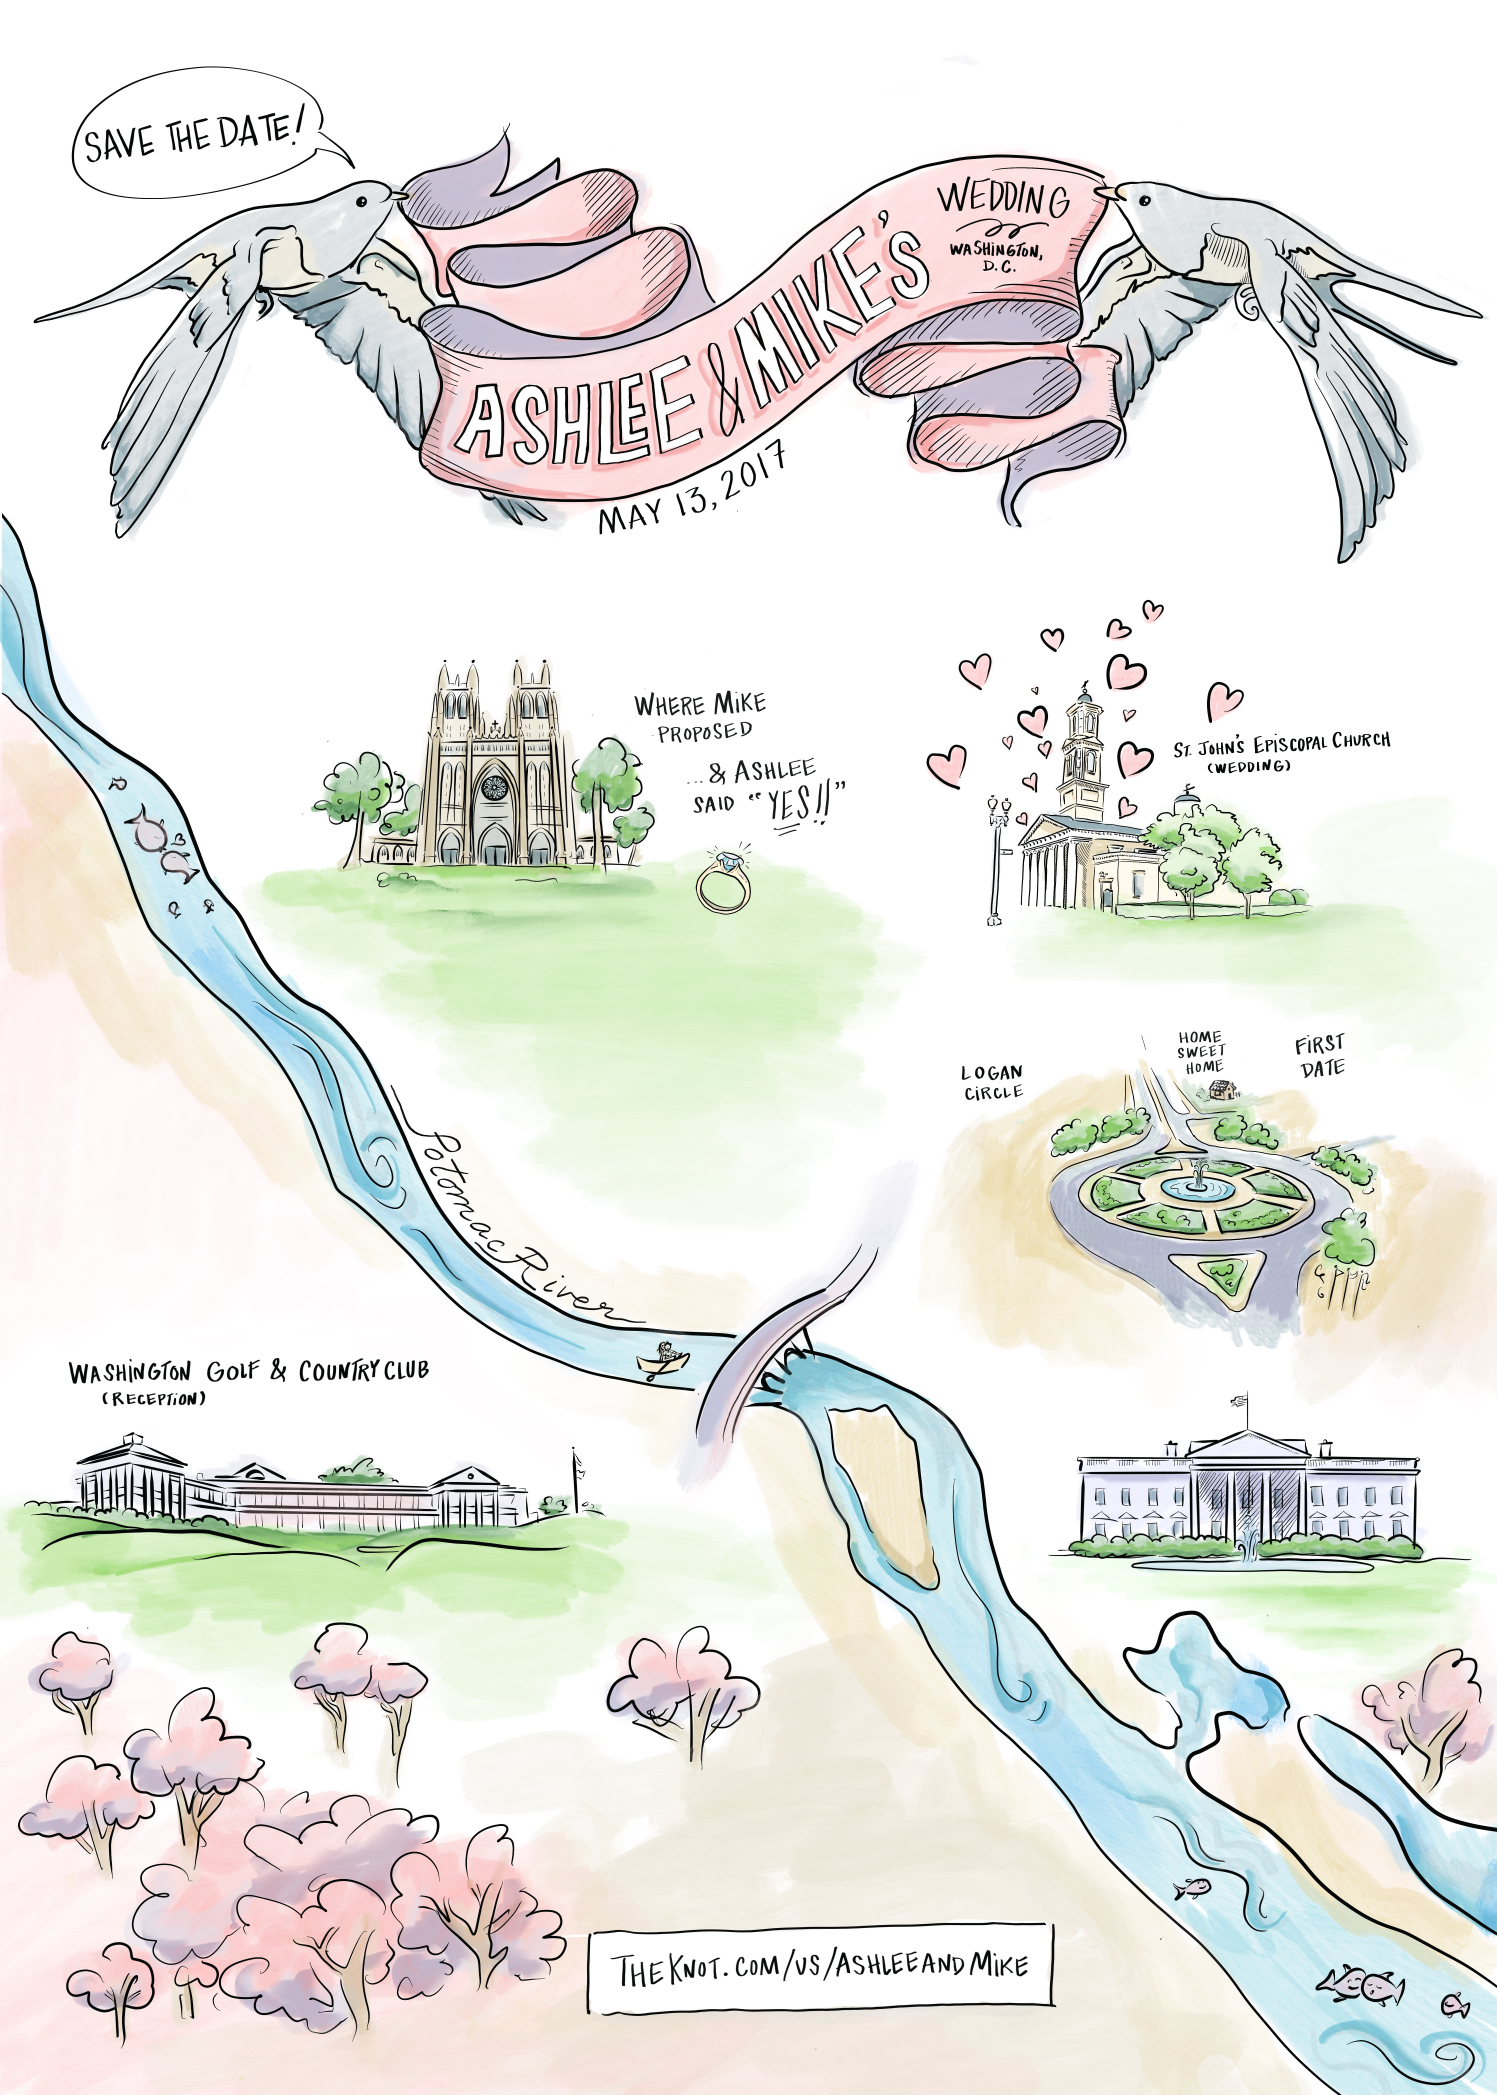 SAVE THE DATE!
ASHLEE & MIKE'S
WEDDING
WASHINGTON,
D.C.
MAY 13, 2017
WHERE MIKE
PROPOSED
...& ASHLEE
SAID "YES!!"
ST. JOHN'S EPISCOPAL CHURCH
(WEDDING)
LOGAN
CIRCLE
HOME
SWEET
HOME
FIRST
DATE
Potomac River
WASHINGTON GOLF & COUNTRY CLUB
(RECEPTION)
THEKNOT.COM/US/ASHLEEANDMIKE